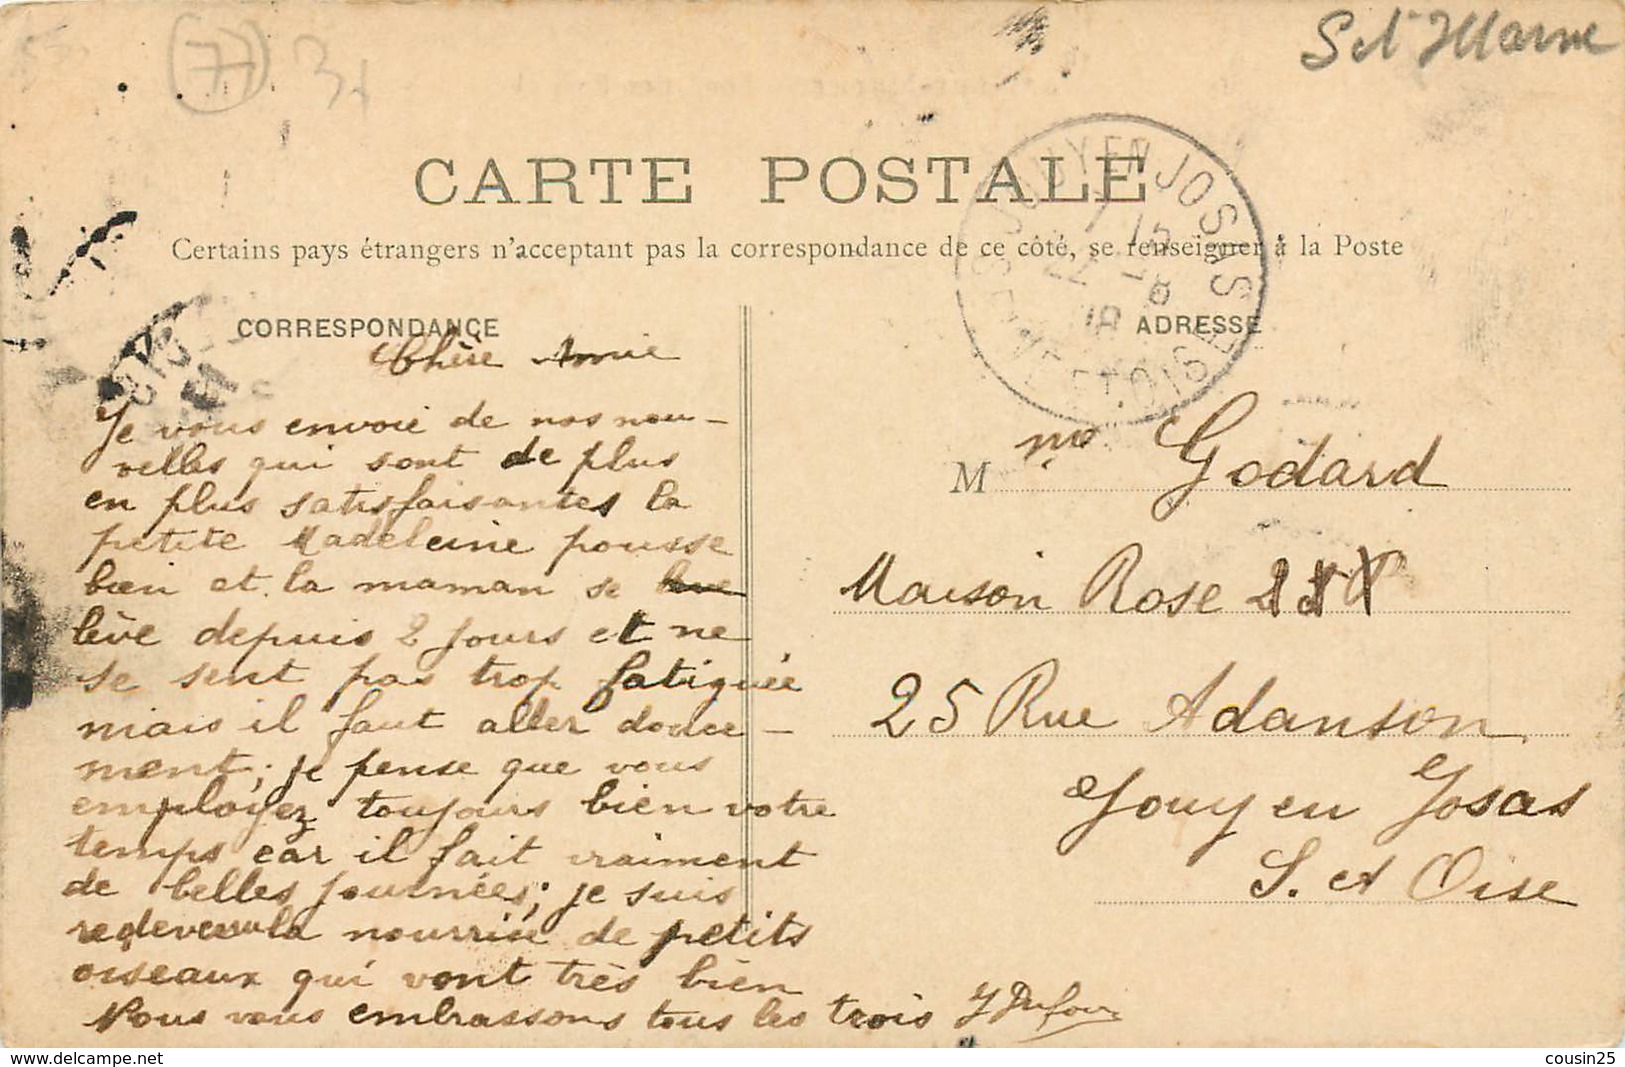 S et Marne
77
CARTE POSTALE
Certains pays étrangers n'acceptant pas la correspondance de ce côté, se renseigner à la Poste
JOUY EN JOSAS
SEINE ET OISE
CORRESPONDANCE
ADRESSE
Chère Amie
Je vous envoie de nos nou-
velles qui sont de plus
en plus satisfaisantes la
petite Madeleine pousse
bien et la maman se
lève depuis 2 jours et ne
se sent pas trop fatiguée
mais il faut aller douce-
ment; je pense que vous
employez toujours bien votre
temps car il fait vraiment
de belles journées; je suis
redevenu la nourrice de petits
oiseaux qui vont très bien
Nous vous embrassons tous les trois J Dufour
Mme Godard
Maison Rose
25 Rue Adanson
Jouy en Josas
S. et Oise
www.delcampe.net
cousin25